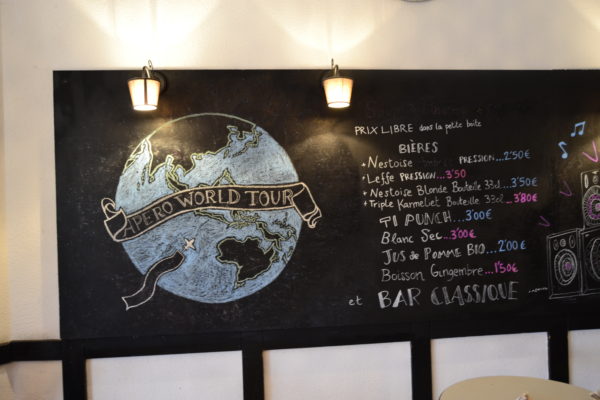 APERO WORLD TOUR
PRIX LIBRE dans la petite boite
BIÈRES
+ Nestoise PRESSION...2'50€
+ Leffe PRESSION...3'50
+ Nestoise Blonde Bouteille 33cl...3'50€
+ Triple Karmeliet Bouteille 33cl...3'80€
TI PUNCH...3'00€
Blanc Sec...3'00€
Jus de Pomme BIO...2'00€
Boisson Gingembre...1'50€
et BAR CLASSIQUE